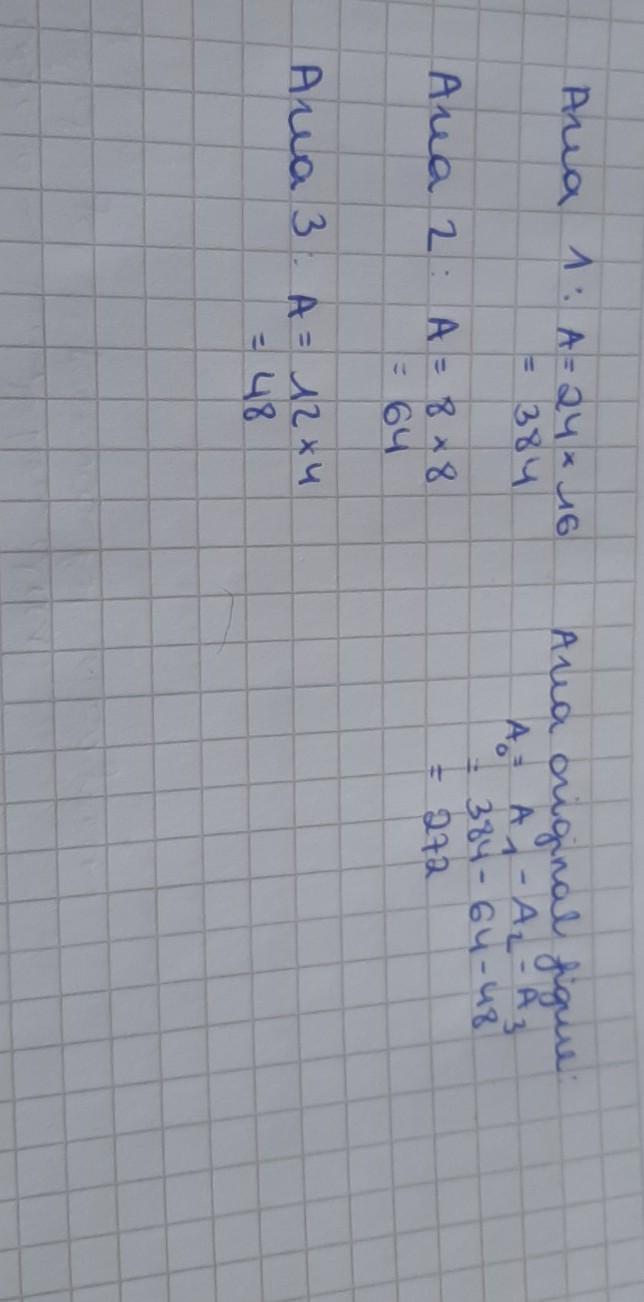 Area 1: A = 24 × 16
= 384
Area 2: A = 8 × 8
= 64
Area 3: A = 12 × 4
= 48
Area original figure:
A₀ = A₁ - A₂ - A₃
= 384 - 64 - 48
= 272